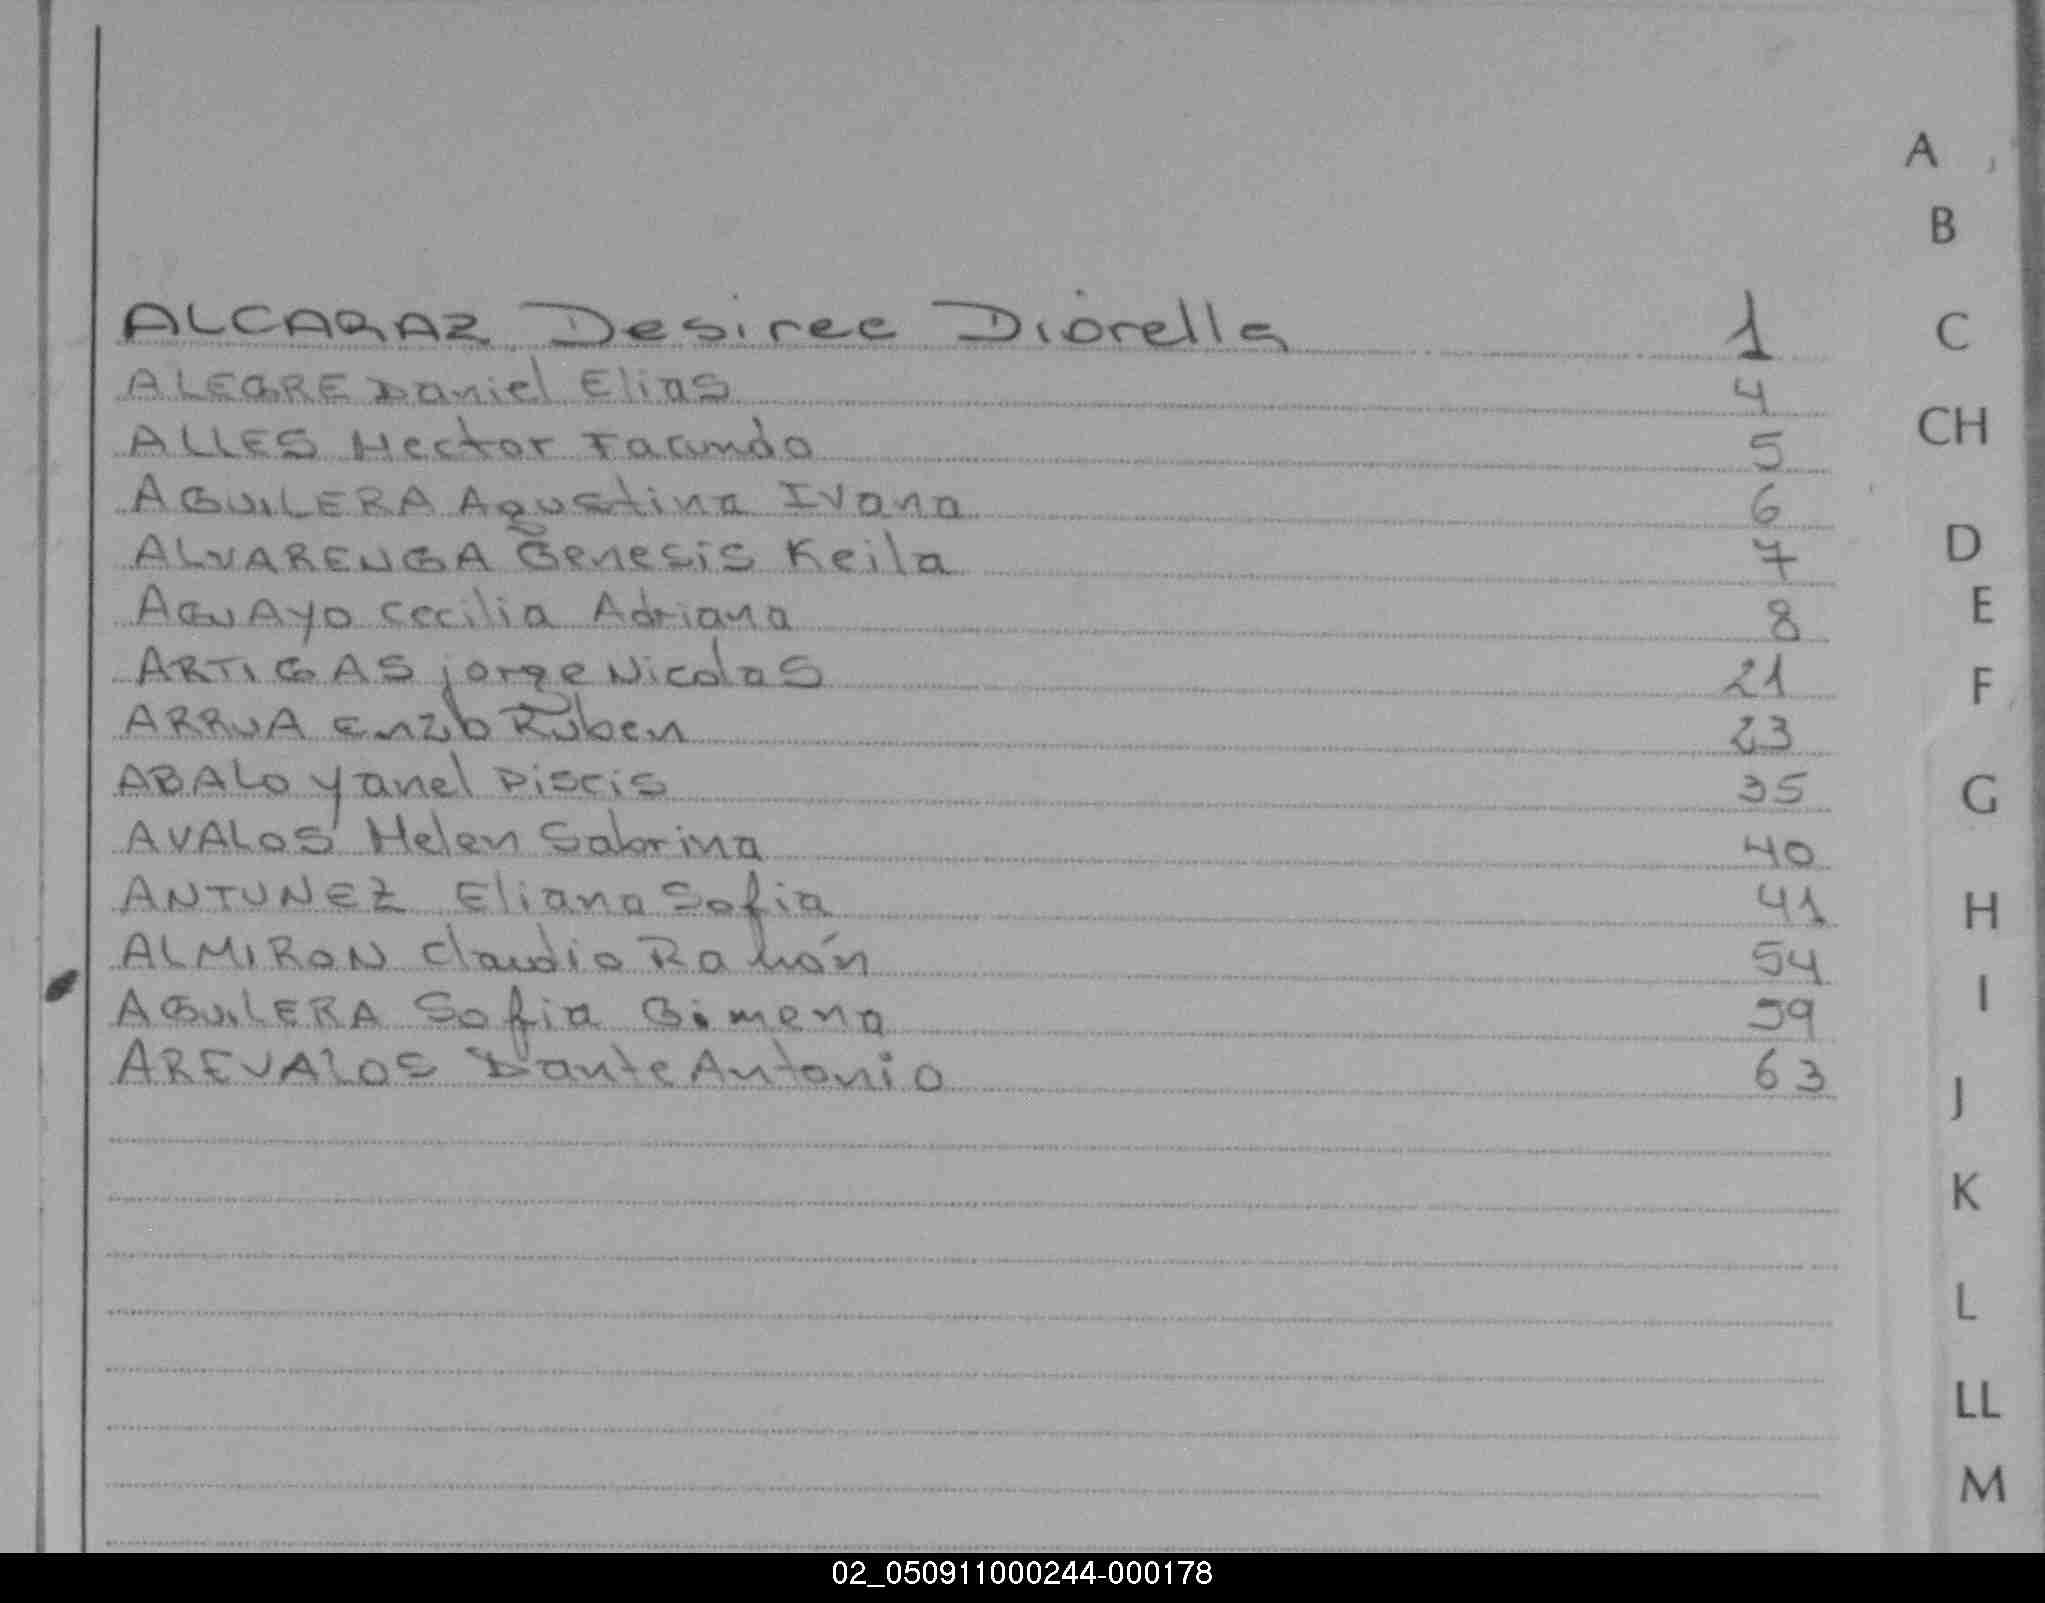 ALCARAZ Desiree Diorella 1
ALEGRE Daniel Elias 4
ALLES Hector Facundo 5
AGUILERA Agustina Ivana 6
ALVARENGA Genesis Keila 7
AGUAYO Cecilia Adriana 8
ARTIGAS jorge Nicolas 21
ARRUA Enzo Ruben 23
ABALO Yanel Piscis 35
AVALOS Helen Sabrina 40
ANTUNEZ Eliana Sofia 41
ALMIRON Claudio Ramón 54
AGUILERA Sofia Gimena 59
AREVALOS Dante Antonio 63
A
B
C
CH
D
E
F
G
H
I
J
K
L
LL
M
02_050911000244-000178